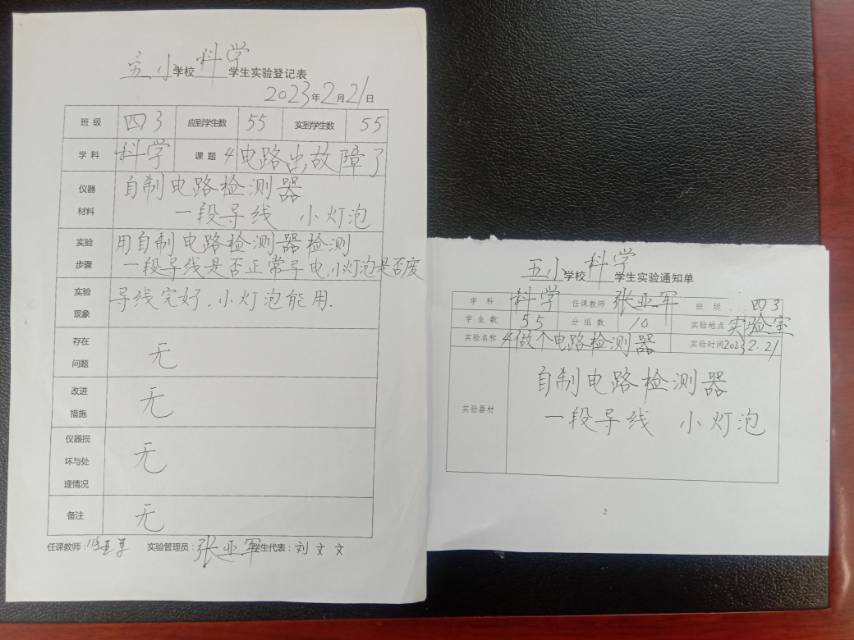 五小学校科学学生实验登记表
2023年2月21日
班级 四3 应到学生数 55 实到学生数 55
学科 科学 课题 4电路出故障了
仪器材料 自制电路检测器
一段导线 小灯泡
实验步骤 用自制电路检测器检测
一段导线是否正常导电,小灯泡是否废
实验现象 导线完好.小灯泡能用.
存在问题 无
改进措施 无
仪器损坏与处理情况 无
备注 无
任课教师: 实验管理员:张亚军 学生代表:刘文文
五小学校科学学生实验通知单
学科 科学 任课教师 张亚军 班级 四3
学生数 55 分组数 10 实验地点 实验室
实验名称 4做个电路检测器 实验时间 2023.2.21
实验器材 自制电路检测器
一段导线 小灯泡
2